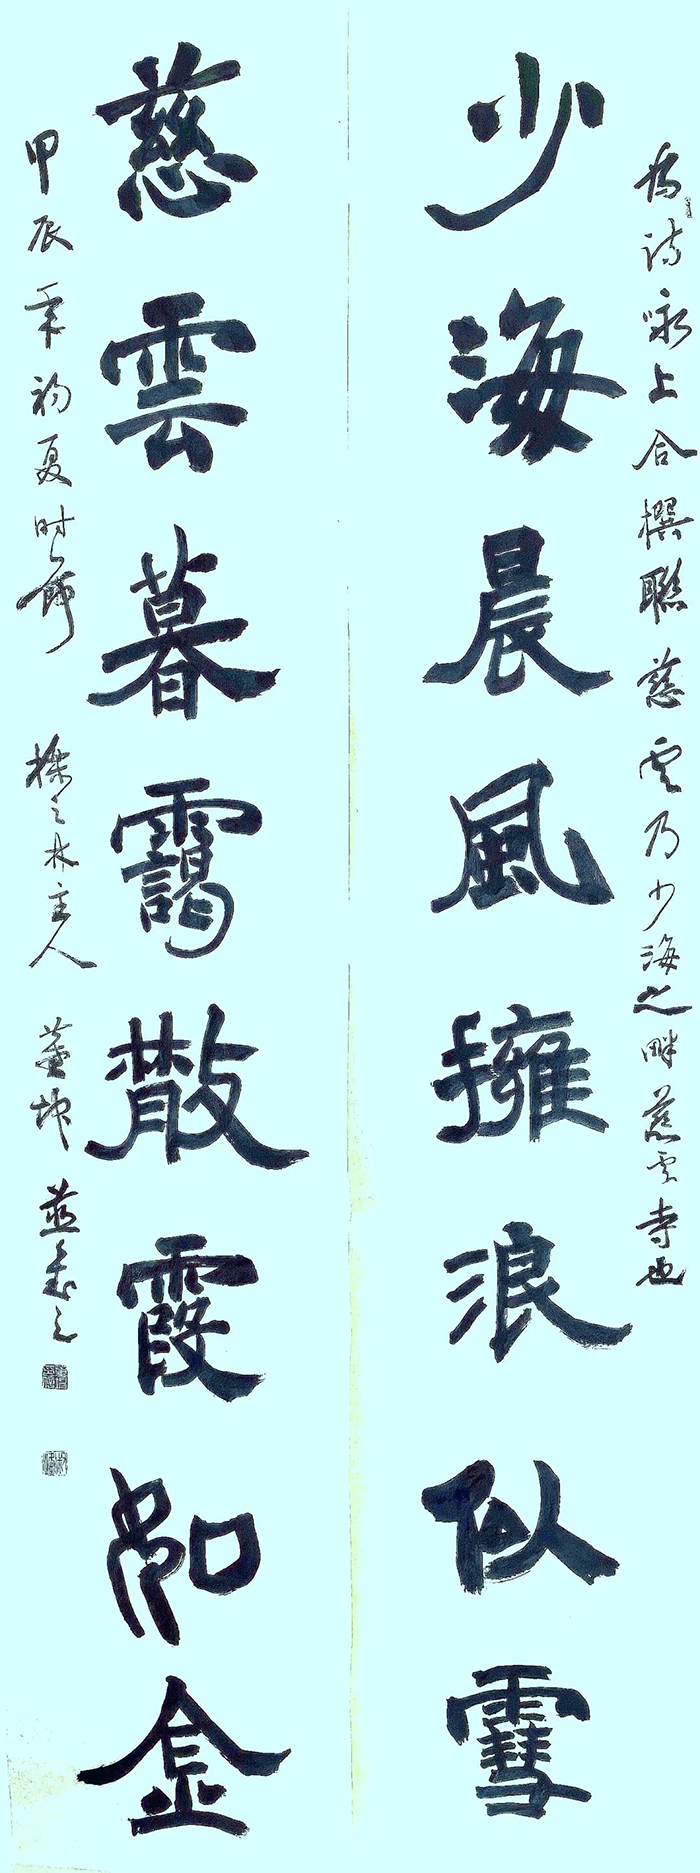 為詩咏上合撰聯慈雲乃少海之畔慈雲寺也
少海晨風擁浪似雪
慈雲暮靄散霞如金
甲辰年初夏时節 之林主人 並書之